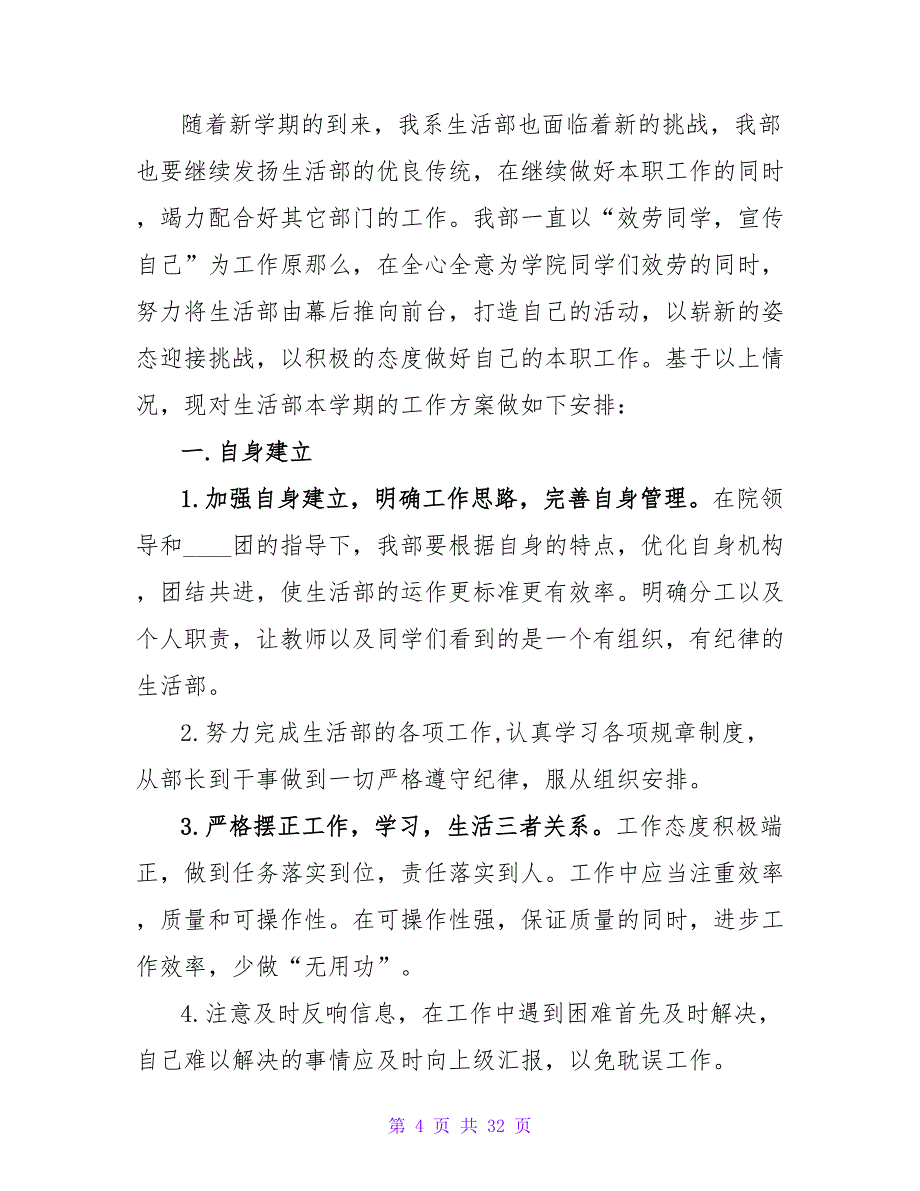 随着新学期的到来，我系生活部也面临着新的挑战，我部
也要继续发扬生活部的优良传统，在继续做好本职工作的同时
，竭力配合好其它部门的工作。我部一直以“效劳同学，宣传
自己”为工作原那么，在全心全意为学院同学们效劳的同时，
努力将生活部由幕后推向前台，打造自己的活动，以崭新的姿
态迎接挑战，以积极的态度做好自己的本职工作。基于以上情
况，现对生活部本学期的工作方案做如下安排：
一.自身建立
1.加强自身建立，明确工作思路，完善自身管理。在院领
导和____团的指导下，我部要根据自身的特点，优化自身机构
，团结共进，使生活部的运作更标准更有效率。明确分工以及
个人职责，让教师以及同学们看到的是一个有组织，有纪律的
生活部。
2.努力完成生活部的各项工作,认真学习各项规章制度，
从部长到干事做到一切严格遵守纪律，服从组织安排。
3.严格摆正工作，学习，生活三者关系。工作态度积极端
正，做到任务落实到位，责任落实到人。工作中应当注重效率
，质量和可操作性。在可操作性强，保证质量的同时，进步工
作效率，少做“无用功”。
4.注意及时反响信息，在工作中遇到困难首先及时解决，
自己难以解决的事情应及时向上级汇报，以免耽误工作。
第 4 页 共 32 页